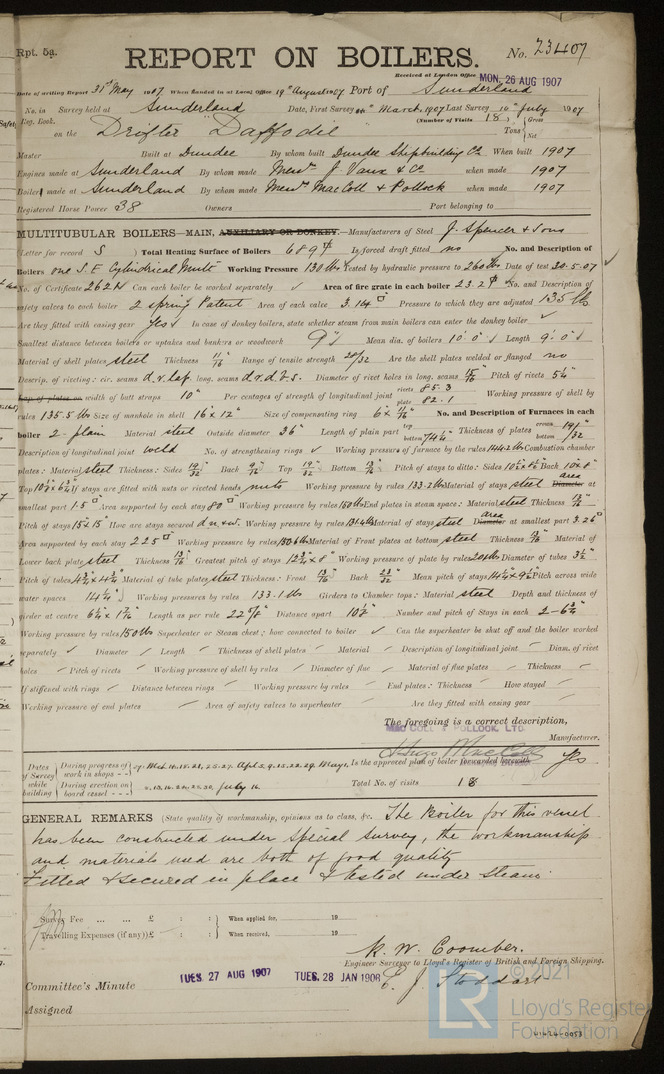 Rpt. 5a.
REPORT ON BOILERS.
No. 23407
Received at London Office MON. 26 AUG 1907
Date of writing Report 31st May 1907 When handed in at Local Office 19th August 1907 Port of Sunderland
No. in Survey held at Sunderland Date, First Survey March 1907 Last Survey 10th July 1907
Reg. Book. (Number of Visits 18)
on the Drifter "Daffodil" Tons Gross Net
Master Built at Dundee By whom built Dundee Shipbuilding Co. When built 1907
Engines made at Sunderland By whom made Messrs J. Vaux & Co when made 1907
Boilers made at Sunderland By whom made Messrs MacColl & Pollock when made 1907
Registered Horse Power 38 Owners Port belonging to
MULTITUBULAR BOILERS—MAIN, AUXILIARY OR DONKEY.—Manufacturers of Steel J. Spencer & Sons
(Letter for record S) Total Heating Surface of Boilers 689 Is forced draft fitted no No. and Description of
Boilers one S.E Cylindrical Multr Working Pressure 130 lbs Tested by hydraulic pressure to 260 lbs Date of test 30.5.07
No. of Certificate 2621 Can each boiler be worked separately ✓ Area of fire grate in each boiler 23.2 No. and Description of
safety valves to each boiler 2 spring Patent Area of each valve 3.14 Pressure to which they are adjusted 135 lbs
Are they fitted with easing gear yes In case of donkey boilers, state whether steam from main boilers can enter the donkey boiler ✓
Smallest distance between boilers or uptakes and bunkers or woodwork 9" Mean dia. of boilers 10'.0" Length 9'.0"
Material of shell plates steel Thickness 11/16" Range of tensile strength 28/32 Are the shell plates welded or flanged no
Descrip. of riveting: cir. seams d.r.lap. long. seams d.r.d.b.s. Diameter of rivet holes in long. seams 15/16" Pitch of rivets 5¼"
Lap of plates or width of butt straps 10" Per centages of strength of longitudinal joint rivets 85.3 plate 82.1 Working pressure of shell by
rules 135.5 lbs Size of manhole in shell 16" x 12" Size of compensating ring 6" x 11/16" No. and Description of Furnaces in each
boiler 2 - plain Material steel Outside diameter 36" Length of plain part top bottom 74¼" Thickness of plates crown bottom 19/32"
Description of longitudinal joint weld No. of strengthening rings ✓ Working pressure of furnace by the rules 144.2 lbs Combustion chamber
plates: Material steel Thickness: Sides 19/32" Back 9/16" Top 19/32" Bottom Pitch of stays to ditto: Sides Back
Top If stays are fitted with nuts or riveted heads nuts Working pressure by rules 133.2 lbs Material of stays steel Diameter area at
smallest part 1.5 Area supported by each stay 80 Working pressure by rules 150 lbs End plates in steam space: Material steel Thickness 13/16"
Pitch of stays 15" x 15" How are stays secured d.n.&w. Working pressure by rules 131.4 lbs Material of stays steel Diameter area at smallest part 3.26
Area supported by each stay 225 Working pressure by rules 150.6 lbs Material of Front plates at bottom steel Thickness 13/16" Material of
Lower back plate steel Thickness 13/16" Greatest pitch of stays Working pressure of plate by rules 204 lbs Diameter of tubes 3½"
Pitch of tubes Material of tube plates steel Thickness: Front 13/16" Back 23/32" Mean pitch of stays Pitch across wide
water spaces 14¼" Working pressures by rules 133.1 lbs Girders to Chamber tops: Material steel Depth and thickness of
girder at centre Length as per rule Distance apart 10½" Number and pitch of Stays in each 2 - 6¾"
Working pressure by rules 150 lbs Superheater or Steam chest: how connected to boiler ✓ Can the superheater be shut off and the boiler worked
separately ✓ Diameter Length Thickness of shell plates Material Description of longitudinal joint Diam. of rivet
holes Pitch of rivets Working pressure of shell by rules Diameter of flue Material of flue plates Thickness
If stiffened with rings Distance between rings Working pressure by rules End plates: Thickness How stayed
Working pressure of end plates Area of safety valves to superheater Are they fitted with easing gear
The foregoing is a correct description,
MAC COLL & POLLOCK, LTD.
Hugo MacColl Manufacturer.
Dates of Survey while building During progress of work in shops - - Is the approved plan of boiler forwarded herewith yes
During erection on board vessel - - - July 16. Total No. of visits 18
GENERAL REMARKS (State quality of workmanship, opinions as to class, &c. The Boiler for this vessel
has been constructed under special survey, the workmanship
and materials used are both of good quality
Fitted & secured in place & tested under steam.
Survey Fee ... ... £ : : When applied for, 19
Travelling Expenses (if any) £ : : When received, 19
K. W. Coomber.
Engineer Surveyor to Lloyd's Register of British and Foreign Shipping.
E. J. Stoddart
Committee's Minute TUES. 27 AUG 1907 TUES. 28 JAN 1908
Assigned
LR © 2021
Lloyd's Register
Foundation